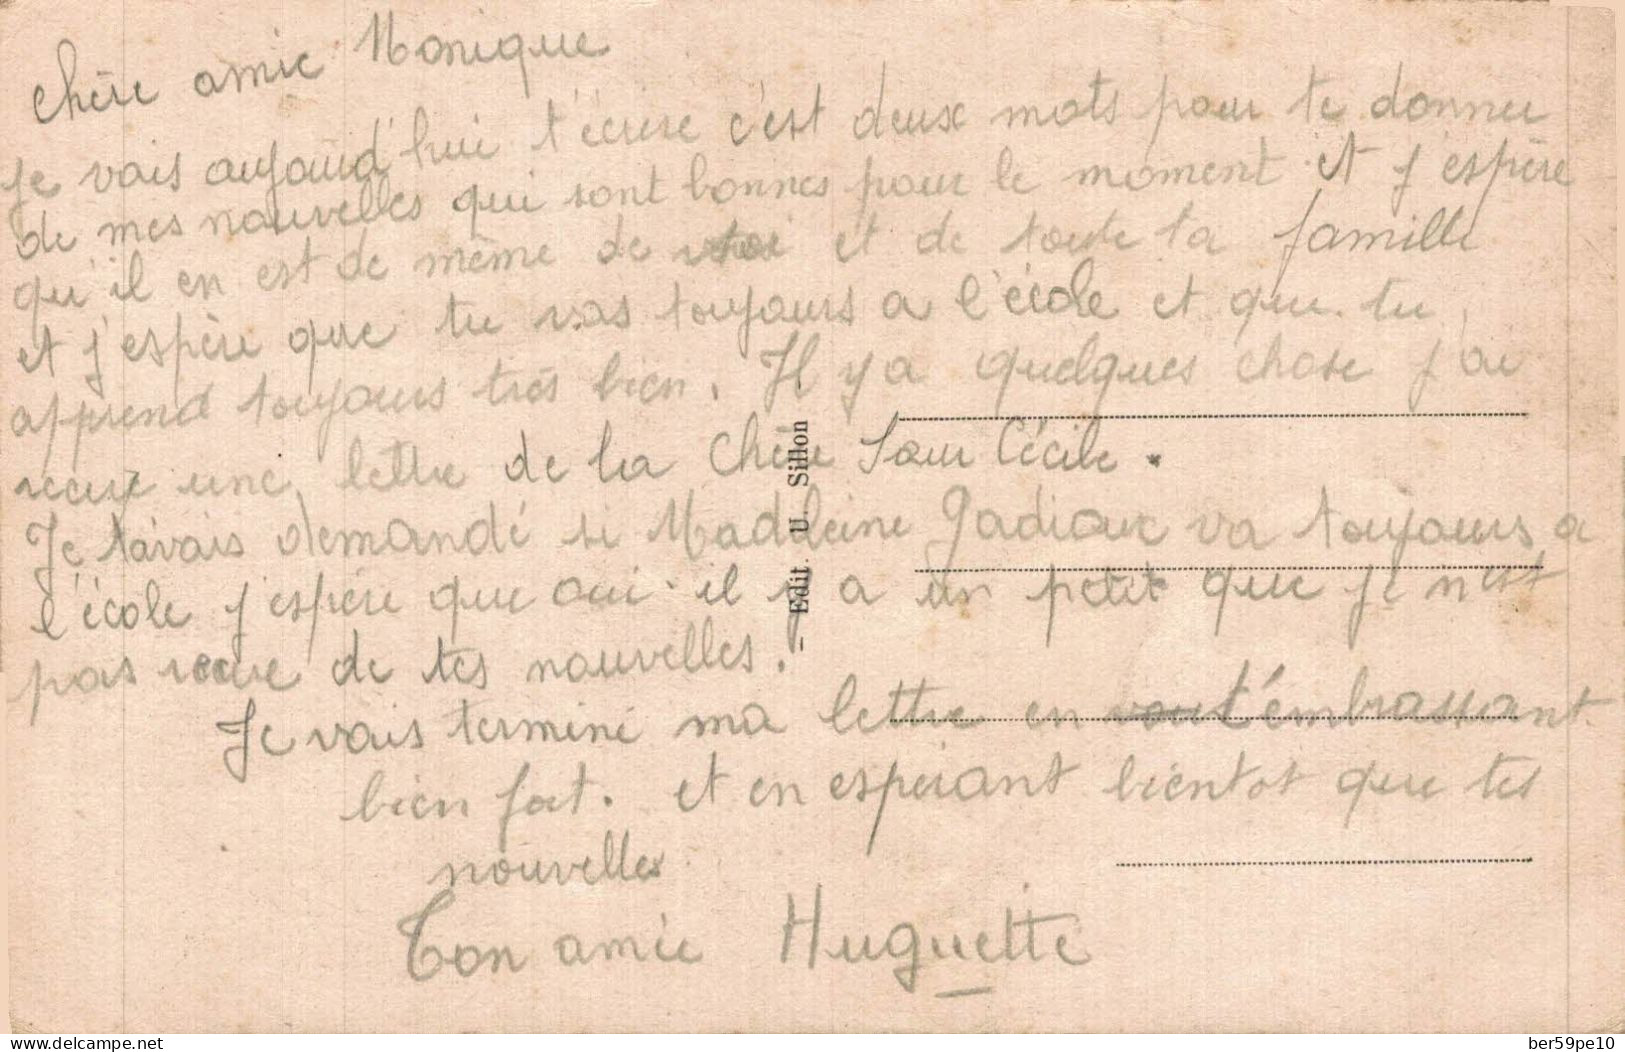 Chère amie Monique
Je vais aujourd'hui t'écrire c'est deux mots pour te donner
de mes nouvelles qui sont bonnes pour le moment et j'espère
qu'il en est de même de toi et de toute ta famille
et j'espère que tu vas toujours a l'école et que tu
apprend toujours très bien. Il y a quelques chose j'ai
reçue une lettre de la Chère Sœur Cécile.
Je t'avais demandé si Madleine Gadioux va toujours a
l'école j'espère que oui il y a un petit que je n'est
pas reçue de tes nouvelles.
Je vais terminé ma lettre en t'embrassant
bien fort. et en espérant bientot que tes
nouvelles
Ton amie Huguette
- Edit. U. Sillon
delcampe.net
ber59pe10